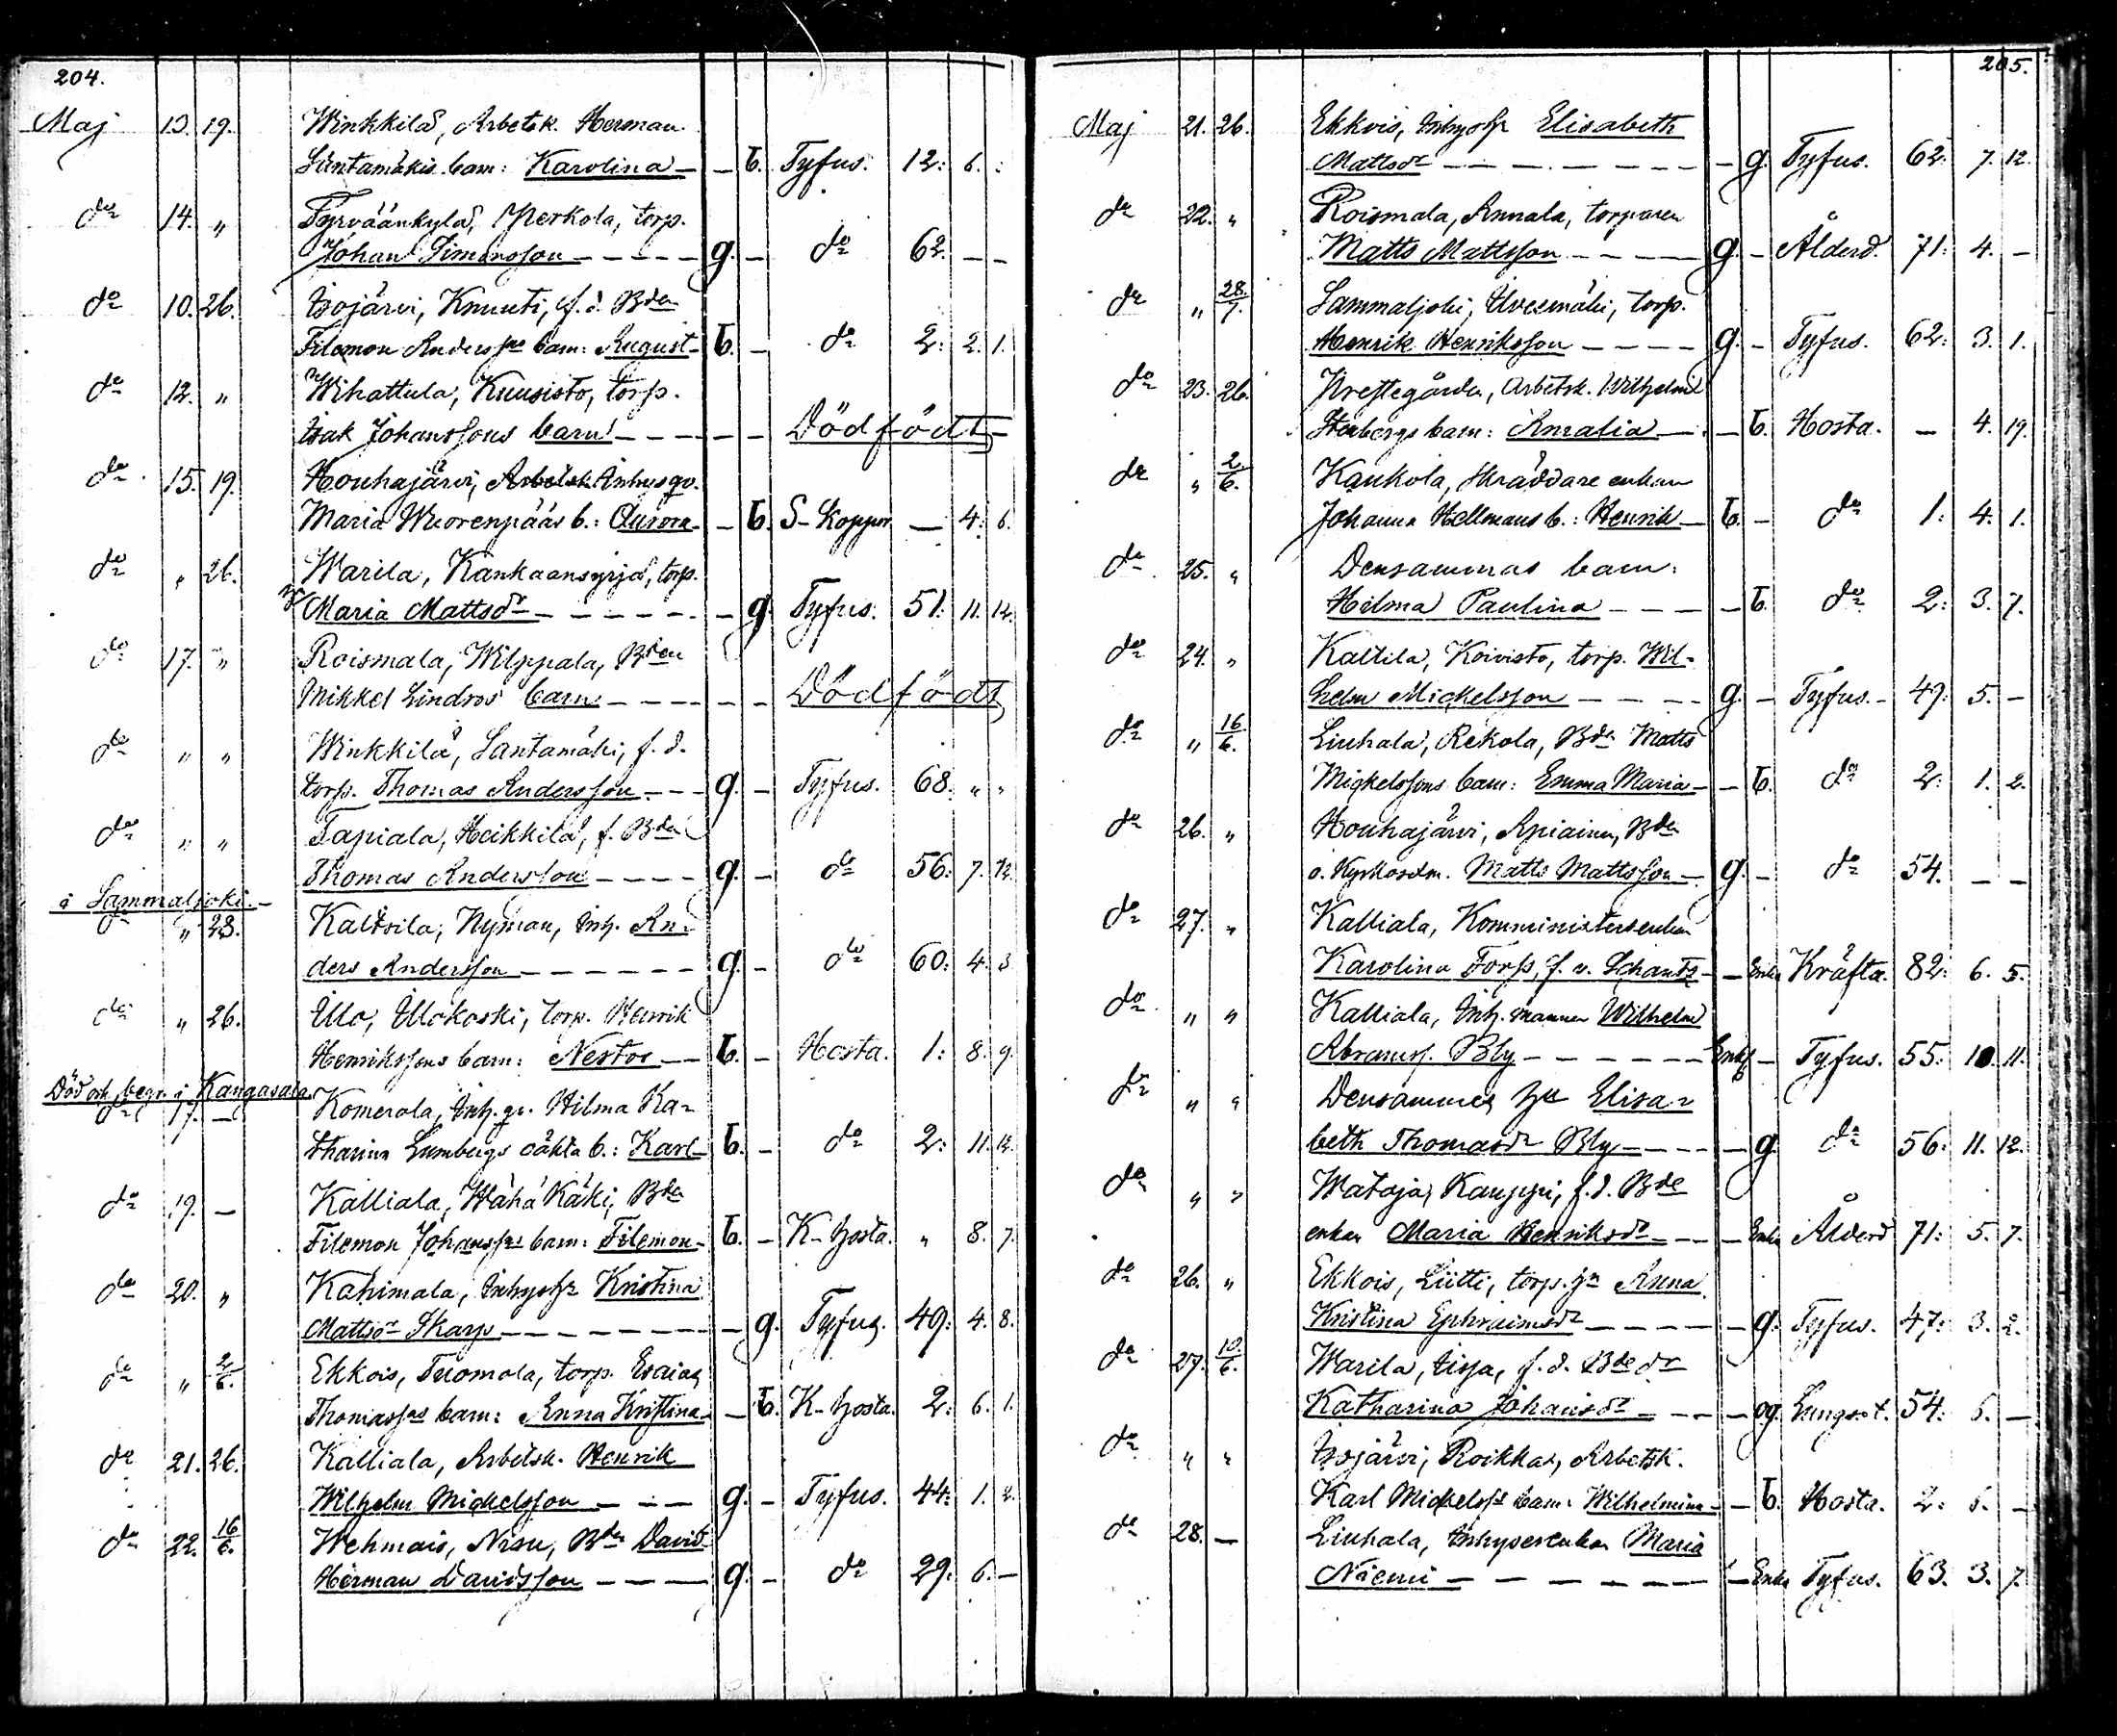 204.
Maj 13. 19. Winkkilä, Arbetsk. Herman
Santamäkis barn: Karolina — — b. Tyfus. 12: 6. :
do 14. „ Tyrväänkylä, Yperkola, torp.
Johan Simonsson — — — — — g. — do 62. — —
do 10. 26. Isojärvi, Knuuti, f. d. Bden
Filemon Anderssns barn: August — b. — do 2: 2. 1.
do 12. „ Wihattula, Kuusisto, torp.
Isak Johanssons barn — — — — — — Dödfödt —
do 15. 19. Houhajärvi, Inhysqv.
Maria Wuorenpääs b.: Aurora — — b. S-Koppor — 4. 6.
do „ 26. Warila, Kankaansyrjä, torp.
Maria Mattsdr — — — — — — — g. Tyfus. 51: 11. 12.
do 17. „ Roismala, Wilppala, Bden
Mikkel Lindros barn — — — — — — Dödfödt
do „ „ Winkkilä, Santamäki, f. d.
torp. Thomas Andersson — — — g. — Tyfus. 68. „ „
do „ „ Tapiala, Heikkilä, f. Bden
Thomas Andersson — — — — g. — do 56. 7. 12.
i Sammaljoki. —
do „ 23. Kaltsila, Nyman, Inh. An-
ders Andersson — — — — — — g. — do 60: 4. 3
do „ 26. Illo, Illokoski, torp. Henrik
Henrikssons barn: Nestor — — b. — Hosta. 1: 8. 9.
Död och begr. i Kangasala.
do 17. — Komerola, Inh. qv. Hilma Ka-
tharina Lumbergs oäkta b.: Karl — b. — do 2: 11. 12.
do 19. — Kalliala, Wähä Käki, Bden
Filemon Johanssns barn: Filemon — b. — K-hosta. „ 8. 7.
do 20. „ Kahimala, Inhyshr Kristina
Mattsdr Skarp — — — — — — — — g. Tyfus. 49: 4. 8.
do „ 2/6. Ekkois, Tuomola, torp. Esaias
Thomassns barn: Anna Kristina — — b. K-hosta. 2: 6. 1.
do 21. 26. Kalliala, Arbetsk. Henrik
Wilhelm Mickelsson — — — g. — Tyfus. 44: 1. 2.
do 22. 16/6. Wehmais, Nisu, Bden David
Herman Davidsson — — — g. — do 29. 6. —
205.
Maj 21. 26. Ekkois, Elisabeth
Mattsdr — — — — — — — — g. Tyfus. 62: 7. 12.
do 22. „ Roismala, Annala, torparen
Matts Mattsson — — — — g. — Ålderd. 71: 4. —
do „ 28/7. Sammaljoki, Uvesmäki, torp.
Henrik Henriksson — — — — g. — Tyfus. 62: 3. 1.
do 23. 26. Prestegården, Arbetsk. Wilhelm
Stenbergs barn: Amalia — — — b. Hosta. — 4. 19.
do „ 2/6. Kaukola, Skräddare enkan
Johanna Hellmans b.: Henrik — b. — do 1: 4. 1.
do 25. „ Densammas barn:
Hilma Paulina — — — — b. do 2: 3. 7.
do 24. „ Kaltila, Koivisto, torp. Wil-
helm Mickelsson — — — — g. — Tyfus. — 49: 5. —
do „ 16/6. Liuhala, Rekola, Bden Matts
Mickelssons barn: Emma Maria — — b. do 2: 1. 2.
do 26. „ Houhajärvi, Apiainen, Bden
o. Kyrkovdn. Matts Mattsson — g. — do 54. — —
do 27. „ Kalliala, Komministersenkan
Karolina Forss, f. v. Schantz — — Enka Kräfta. 82: 6. 5.
do „ „ Kalliala, Inh. mannen Wilhelm
Abramss. Bly — — — — — — Enkl. — Tyfus. 55: 10. 11.
do „ „ Densammes hu Elisa-
beth Thomasdr Bly — — — — g. do 56: 11. 12.
do „ „ Wataja, Kauppi, f. d. Bde
enkan Maria Henriksdr — — — Enka Ålderd 71: 5. 7.
do 26. „ Ekkois, Liitti, torp. hn Anna
Kristina Ephraimsdr — — — — — g. Tyfus. 47: 3. 2.
do 27. 10/6. Warila, f. d. Bde dr
Katharina Johansdr — — — — og. Lungsot. 54: 6. —
do „ „ Isojärvi, Roikka, Arbetsk.
Karl Mickelsss barn: Wilhelmina — — b. Hosta. 2: 6. —
do 28. — Liuhala, Inhysesenkan Maria
Niemi — — — — — — — — Enka Tyfus. 63. 3. 7.